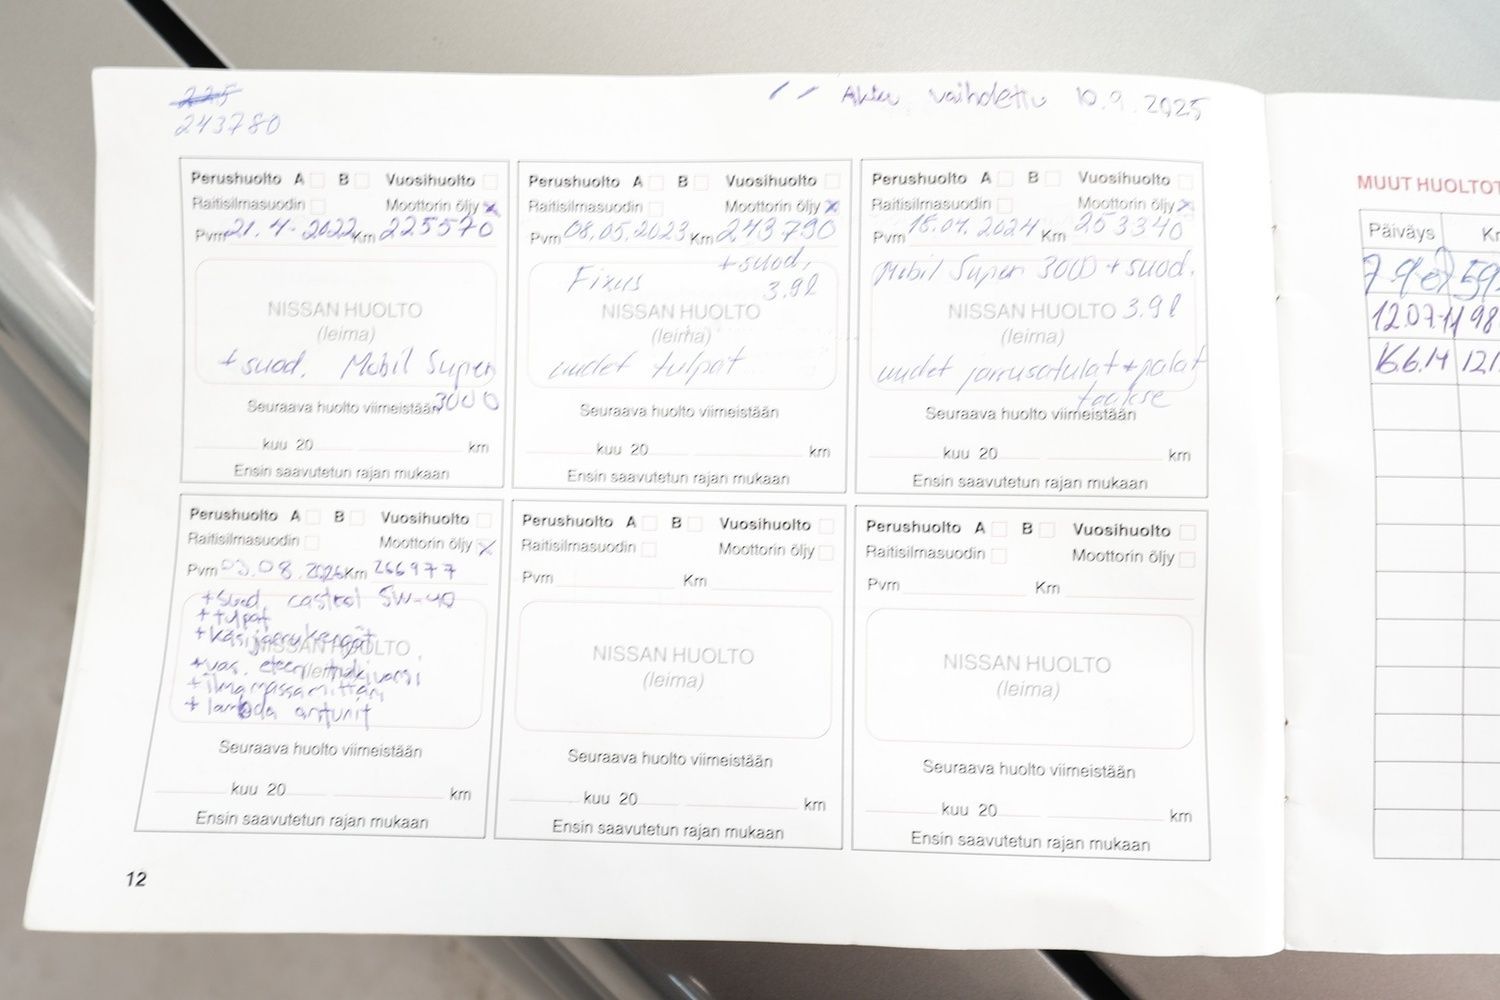 225
243780
Akku vaihdettu 10.9.2025
Perushuolto A B Vuosihuolto
Raitisilmasuodin Moottorin öljy x
Pvm 21.4.2022 Km 225570
NISSAN HUOLTO
(leima)
+ suod. Mobil Super
3000
Seuraava huolto viimeistään
kuu 20 km
Ensin saavutetun rajan mukaan
Perushuolto A B Vuosihuolto
Raitisilmasuodin Moottorin öljy x
Pvm 08.05.2023 Km 243790
+ suod,
Fixus 3.9l
NISSAN HUOLTO
(leima)
uudet tulpat
Seuraava huolto viimeistään
kuu 20 km
Ensin saavutetun rajan mukaan
Perushuolto A B Vuosihuolto
Raitisilmasuodin Moottorin öljy x
Pvm 2024 Km 253340
Mobil Super 3000 + suod.
NISSAN HUOLTO 3.9l
(leima)
uudet jarrusatulat + palat
taakse
Seuraava huolto viimeistään
kuu 20 km
Ensin saavutetun rajan mukaan
Perushuolto A B Vuosihuolto
Raitisilmasuodin Moottorin öljy x
Pvm Km 266977
+ suod. castrol 5W-40
+ tulpat
+ käsijarrukengät
NISSAN HUOLTO
+ vas. eteen tukivarsi
(leima)
+ ilmamassamittari
+ lambda anturit
Seuraava huolto viimeistään
kuu 20 km
Ensin saavutetun rajan mukaan
Perushuolto A B Vuosihuolto
Raitisilmasuodin Moottorin öljy
Pvm Km
NISSAN HUOLTO
(leima)
Seuraava huolto viimeistään
kuu 20 km
Ensin saavutetun rajan mukaan
Perushuolto A B Vuosihuolto
Raitisilmasuodin Moottorin öljy
Pvm Km
NISSAN HUOLTO
(leima)
Seuraava huolto viimeistään
kuu 20 km
Ensin saavutetun rajan mukaan
12
MUUT HUOLTOT
Päiväys
12.07.11 98
16.6.14 121